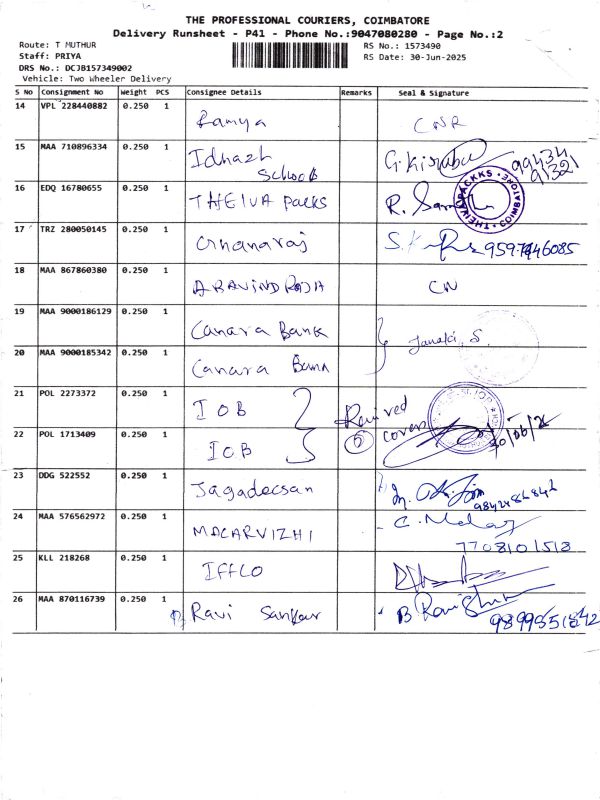 THE PROFESSIONAL COURIERS, COIMBATORE
Delivery Runsheet - P41 - Phone No.:9047080280 - Page No.:2
Route: T MUTHUR
RS No.: 1573490
Staff: PRIYA
RS Date: 30-Jun-2025
DRS No.: DCJB157349002
Vehicle: Two Wheeler Delivery
S No Consignment No Weight PCS Consignee Details Remarks Seal & Signature
14 VPL 228440882 0.250 1 Ramya CNR
15 MAA 710896334 0.250 1 Idhazh School G. 99434 91321
16 EDQ 16780655 0.250 1 THEIVA Packs R. COIMBATORE
17 TRZ 280050145 0.250 1 Gnanaraj S.K
18 MAA 867860380 0.250 1 ARAVIND RAJA CN
19 MAA 9000186129 0.250 1 Canara Bank
Janaki, S.
20 MAA 9000185342 0.250 1 Canara Bank
21 POL 2273372 0.250 1 IOB
covers
22 POL 1713409 0.250 1 IOB 5
23 DDG 522552 0.250 1 Jagadeesan
24 MAA 576562972 0.250 1 MALARVIZHI C. 7708101518
25 KLL 218268 0.250 1 IFFLO
26 MAA 870116739 0.250 1 Ravi Sankar B